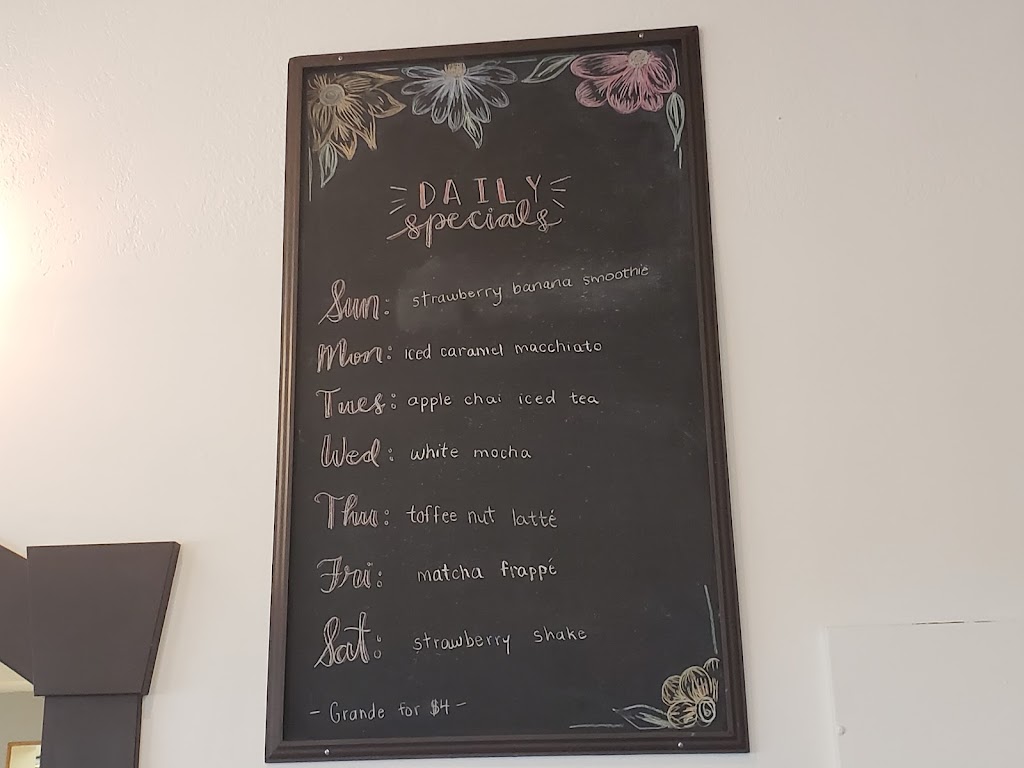 DAILY
specials
Sun: strawberry banana smoothie
Mon: iced caramel macchiato
Tues: apple chai iced tea
Wed: white mocha
Thu: toffee nut latté
Fri: matcha frappé
Sat: strawberry shake
- Grande for $4 -